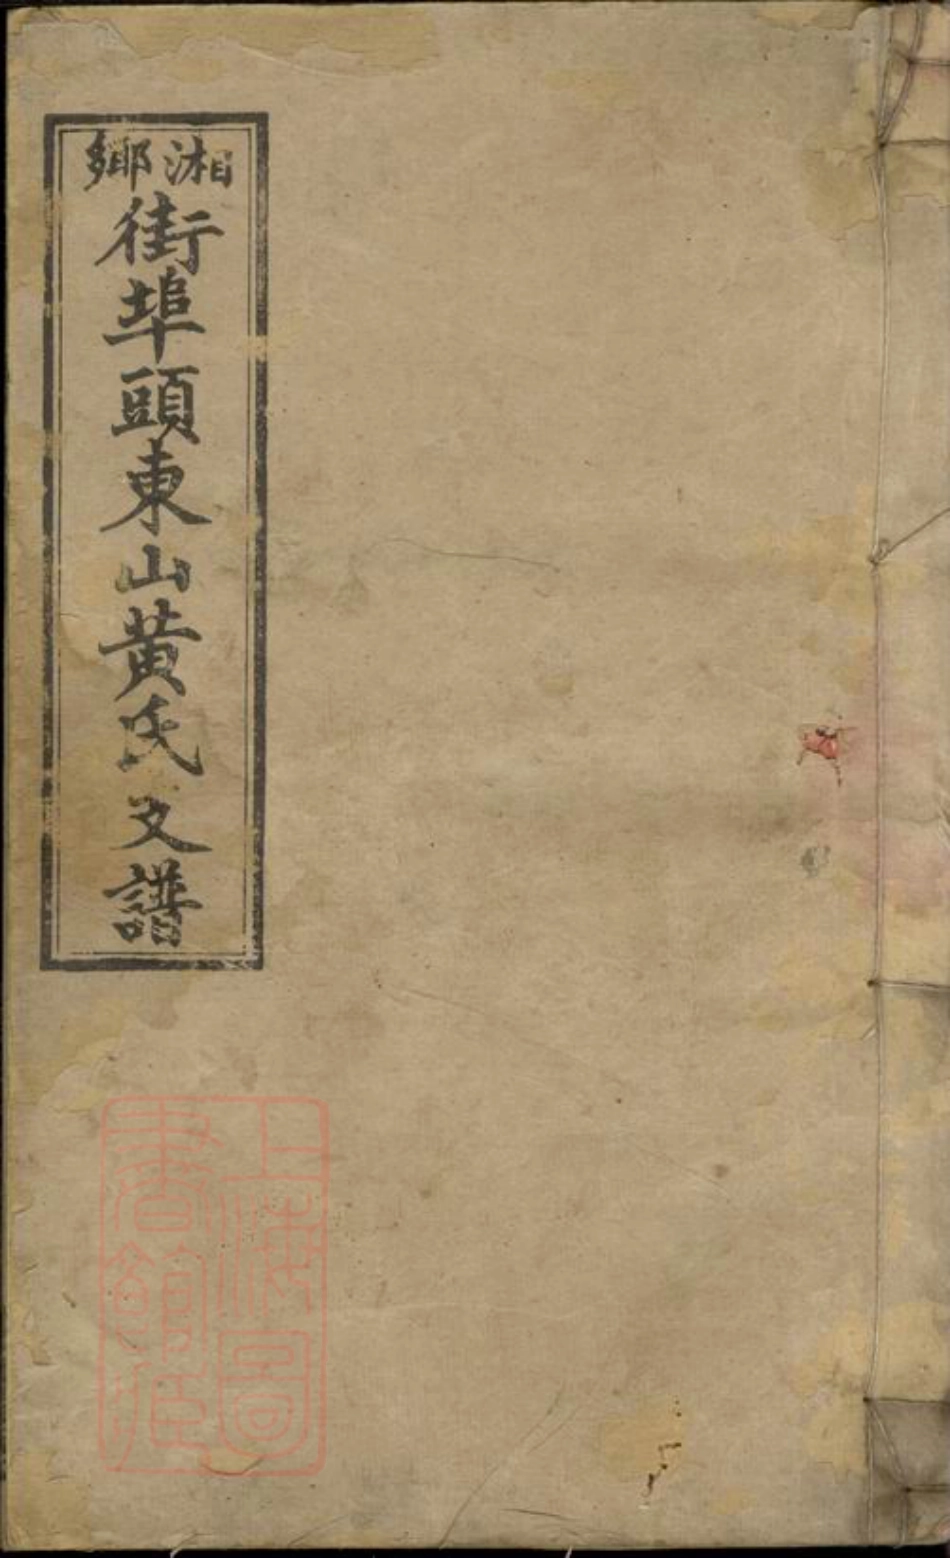 湘鄉
街埠頭東山黄氏文譜
上海圖
書館藏